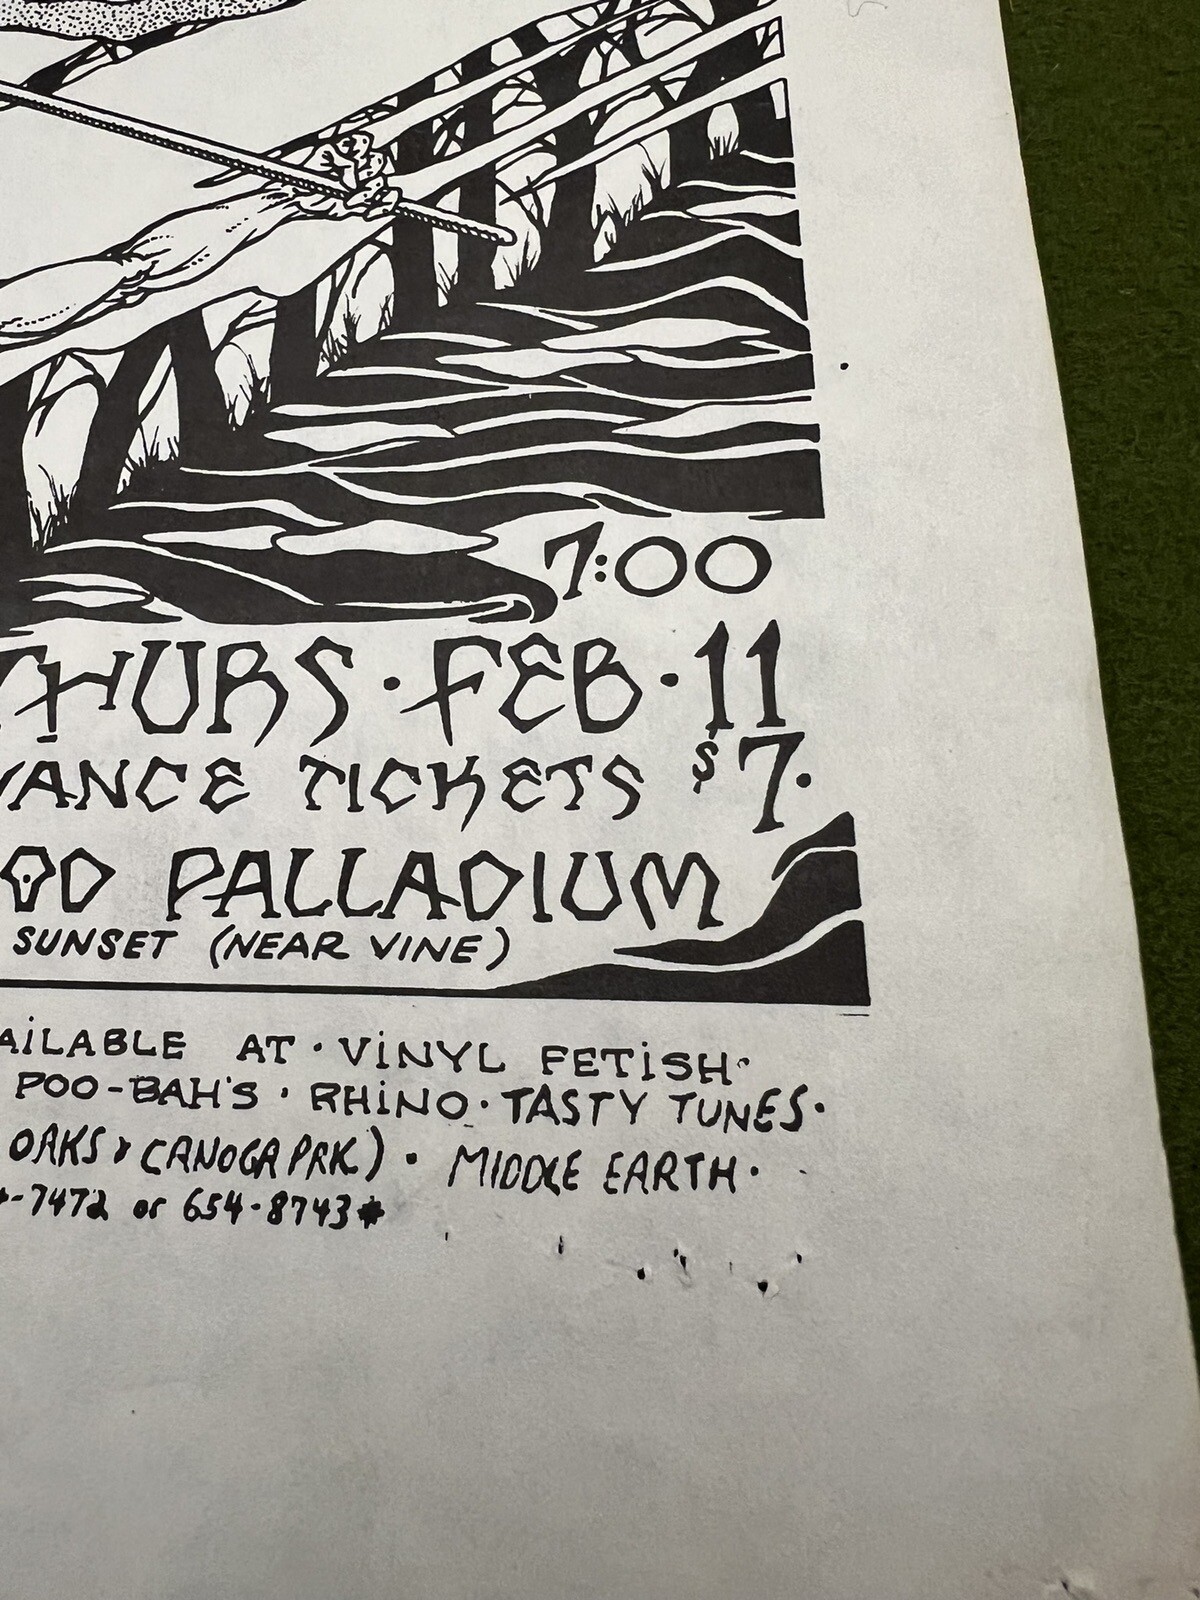 7:00
THURS · FEB · 11
VANCE TICKETS $7.
OD PALLADIUM
SUNSET (NEAR VINE)
AILABLE AT · VINYL FETISH ·
POO-BAH'S · RHINO · TASTY TUNES ·
OAKS & CANOGA PRK) · MIDDLE EARTH ·
-7472 or 654-8743*